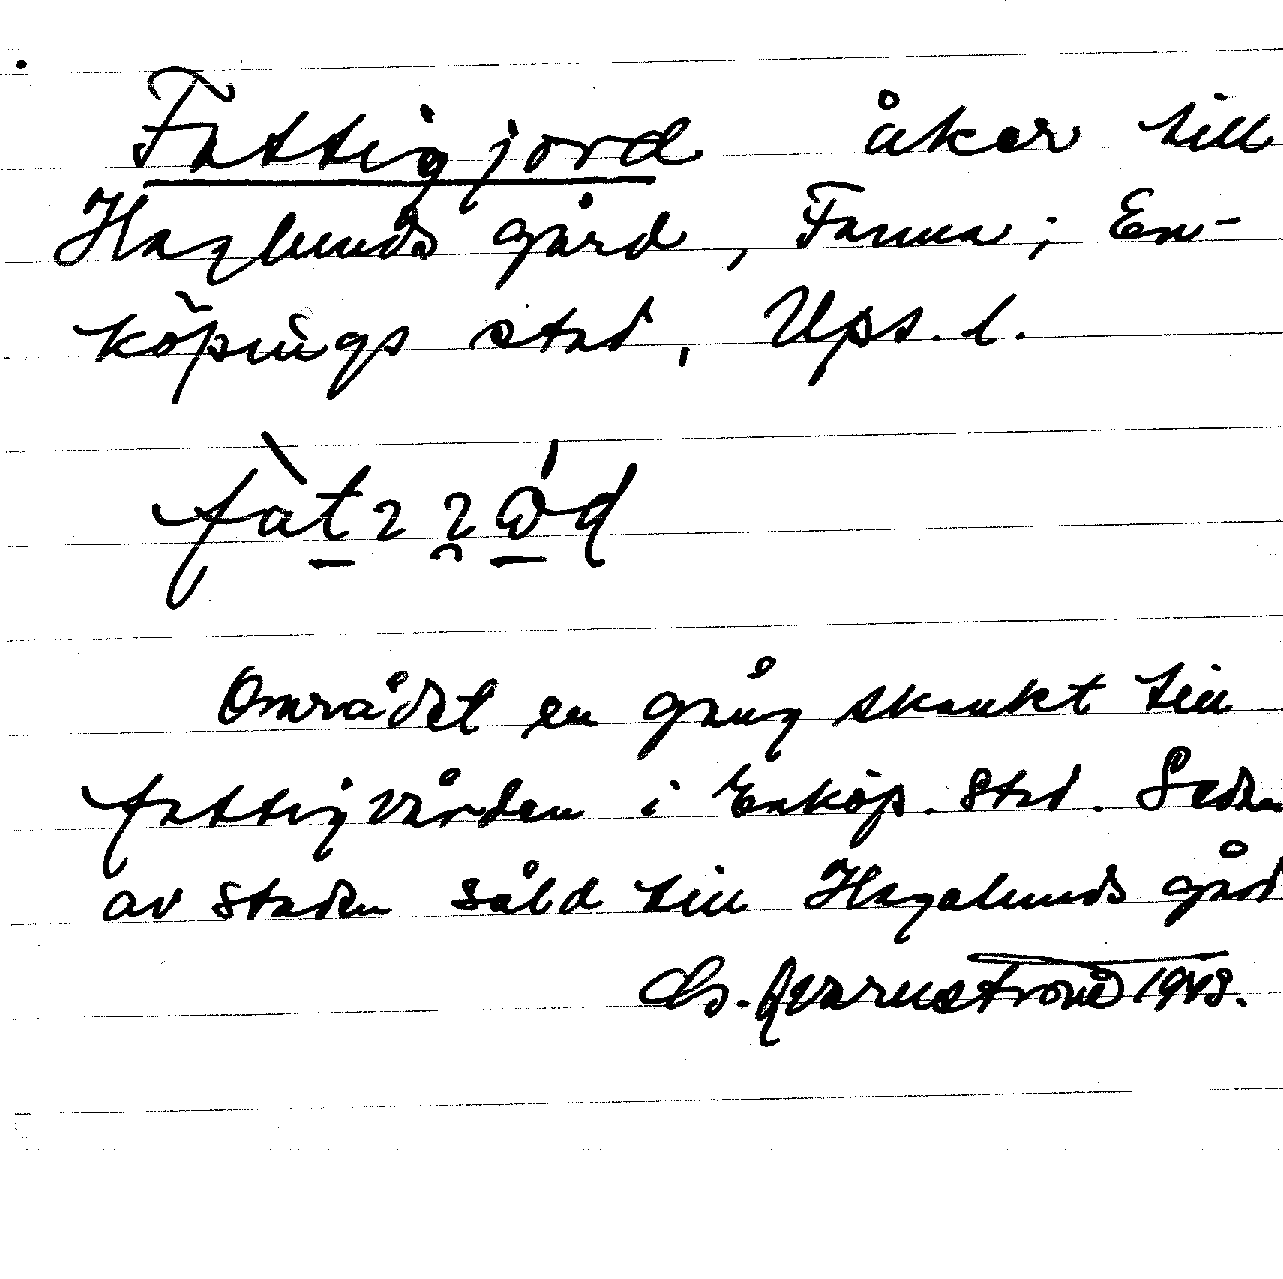 Fattigjord åker till
Haglunds gård, Fanna; En-
köpings stad, Ups. l.
Området en gång skänkt till
fattigvården i Enköp. stad. Sedan
av staden såld till Hagalunds gård
Qvarnström 1948.